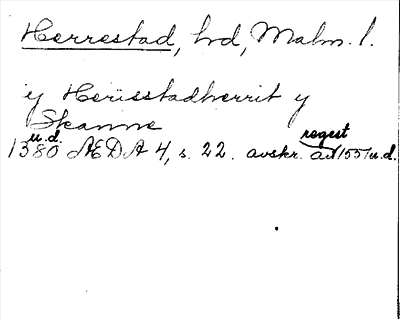 Herrestad, hd, Malm. l.
y Herisstadherrit y
Skanne
u.d. regest
1380 ÆDA 4, s. 22. avskr. av 1551 u.d.